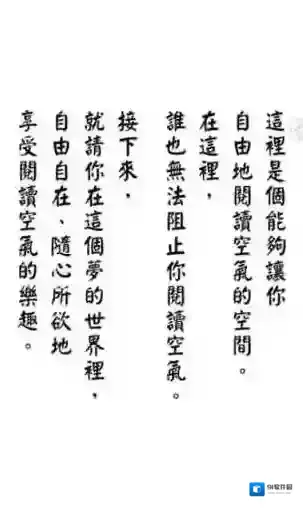 這裡是個能夠讓你
自由地閱讀空氣的空間。
在這裡，
誰也無法阻止你閱讀空氣。
接下來，
就請你在這個夢的世界裡，
自由自在、隨心所欲地
享受閱讀空氣的樂趣。